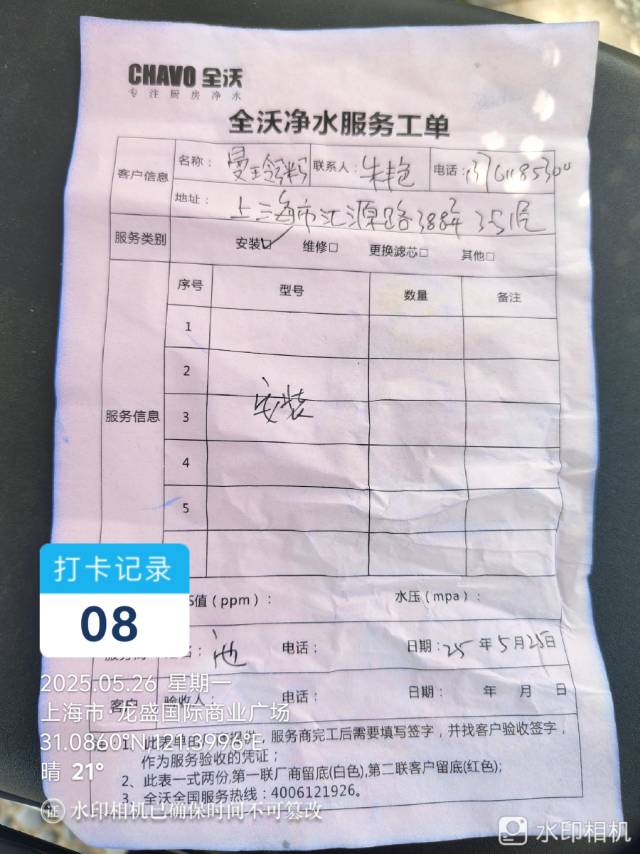 CHAVO 全沃
专注厨房净水
全沃净水服务工单
客户信息
名称：
联系人：朱艳
电话：
地址：上海市汇源路388弄35座
服务类别 安装☑ 维修□ 更换滤芯□ 其他□
服务信息
序号 型号 数量 备注
1
2
3 安装
4
5
S值（ppm）： 水压（mpa）：
电话： 日期：25年5月25日
客户 验收人： 电话： 日期： 年 月 日
1、此表单 服务商完工后需要填写签字，并找客户验收签字，
作为服务验收的凭证；
2、此表一式两份,第一联厂商留底(白色),第二联客户留底(红色);
3、全沃全国服务热线：4006121926。
打卡记录
08
2025.05.26 星期一
上海市·龙盛国际商业广场
31.0860°N,121.3996°E
晴 21°
证 水印相机已确保时间不可篡改
水印相机